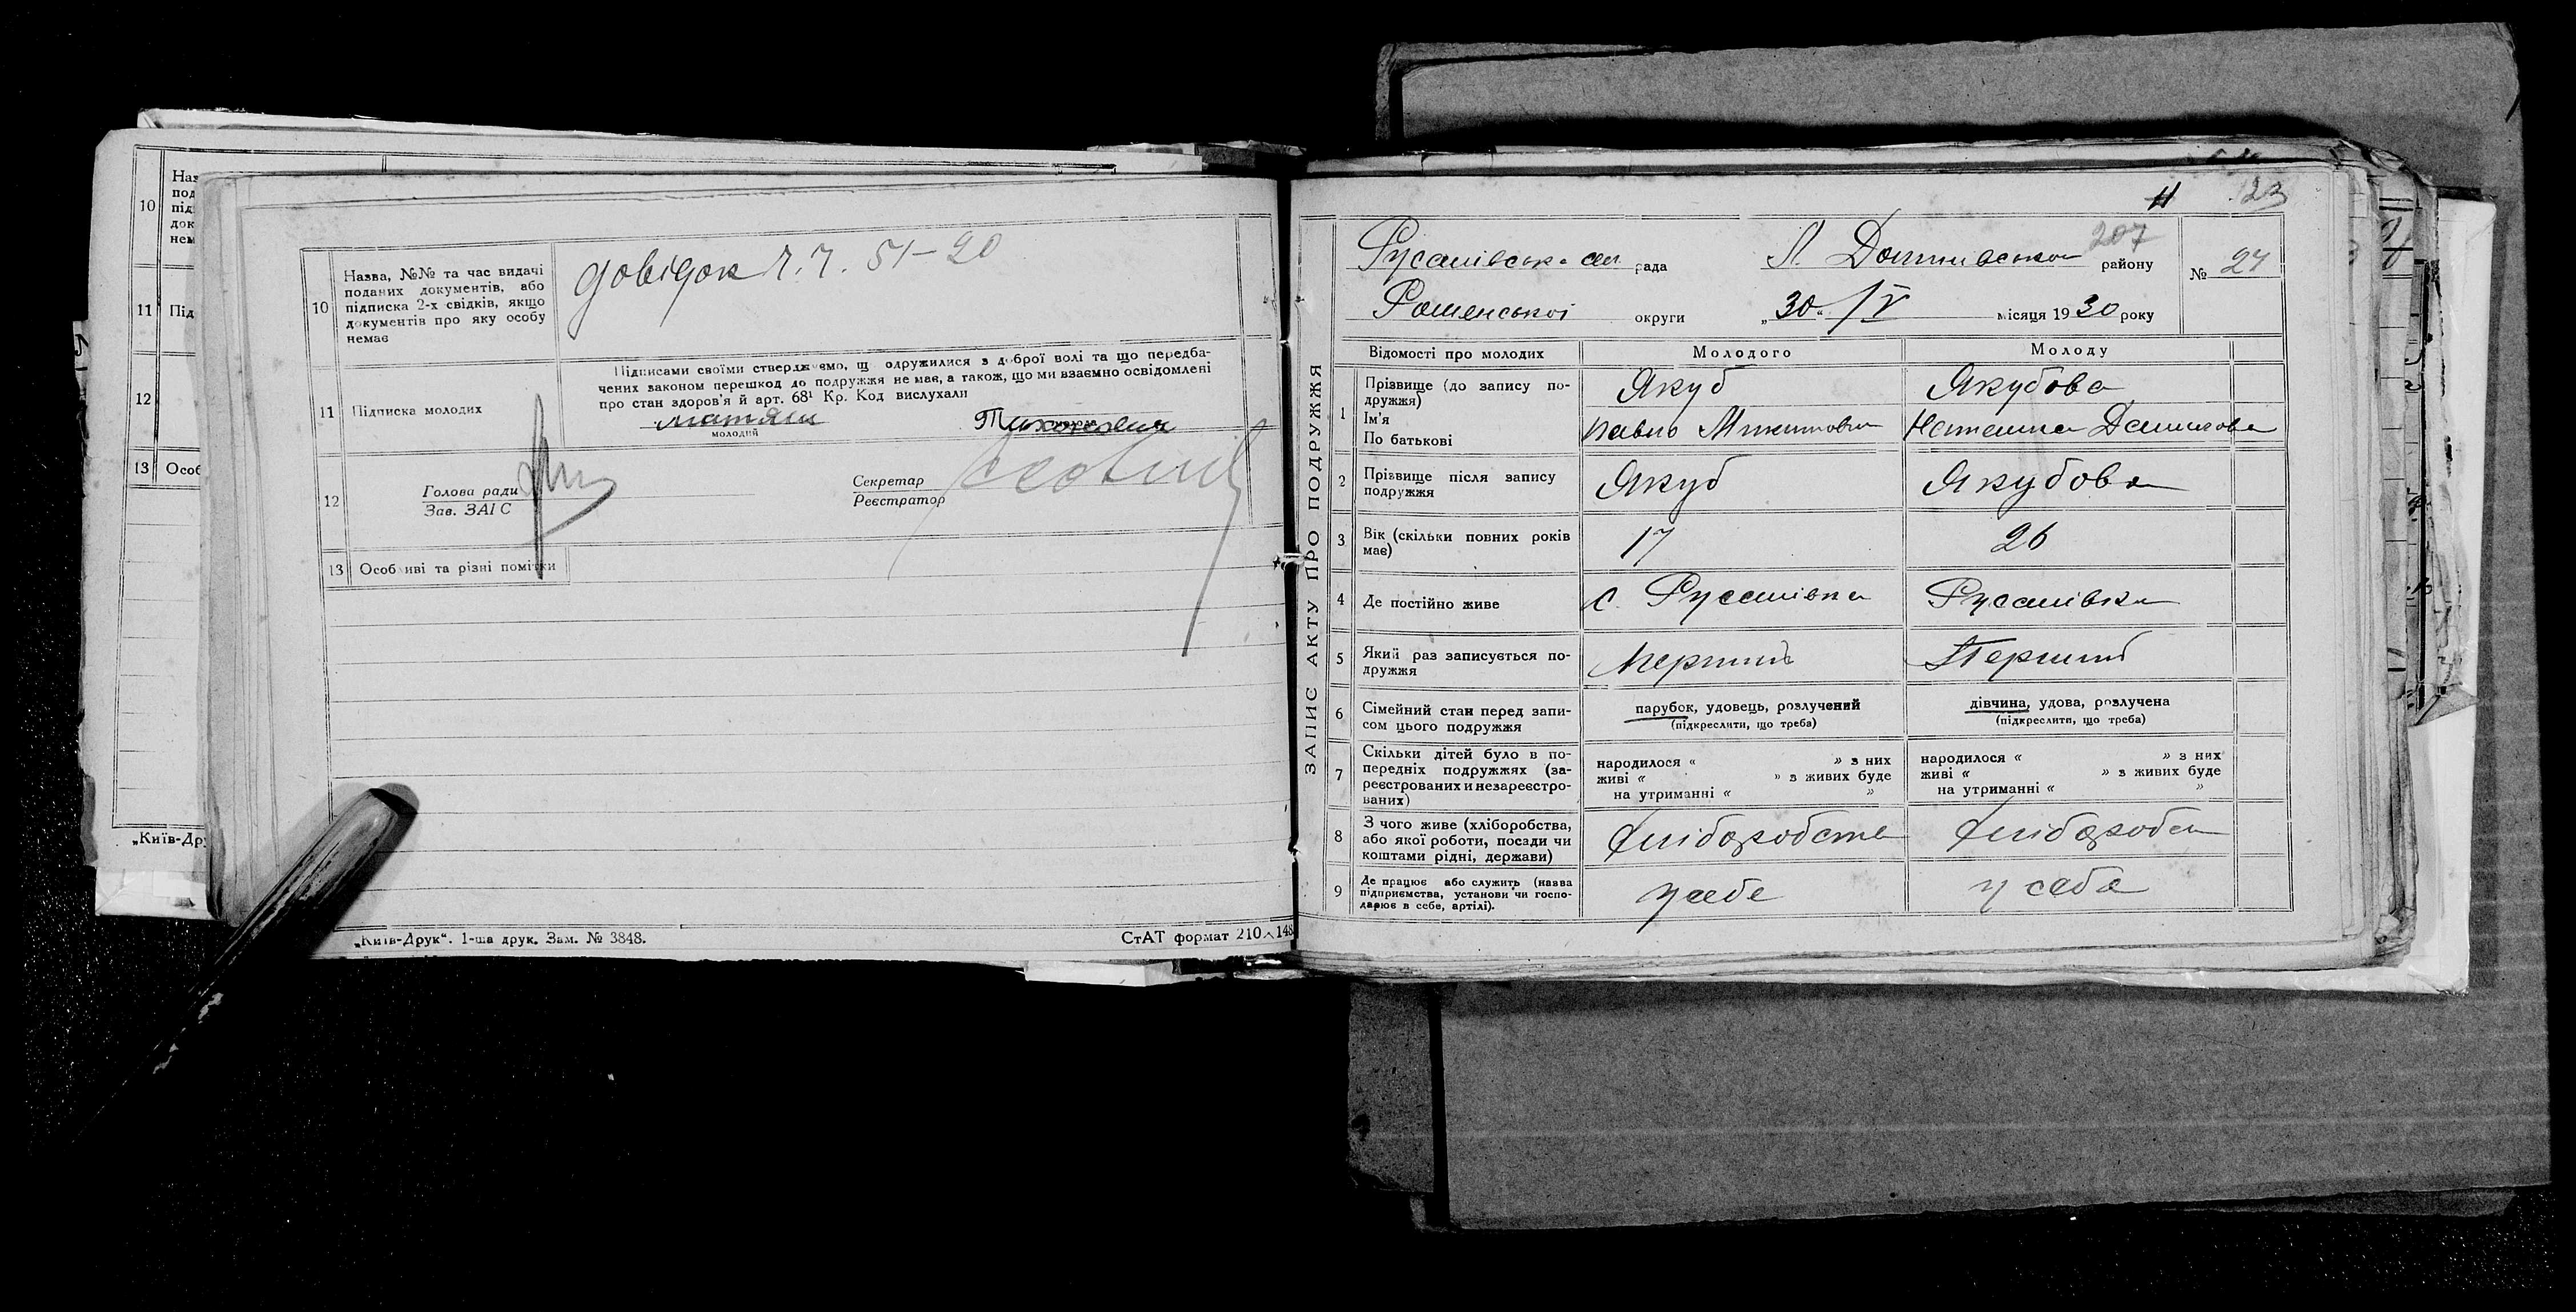 10
Наз
под
під
док
нем
11
Під
12
13
Особ
„Київ-Др
10
Назва, №№ та час видачі
поданих документів, або
підписка 2-х свідків, якщо
документів про яку особу
немає
довідок ч.ч. 51-20
11
Підписка молодих
Підписами своїми стверджуємо, щ одружилися з доброї волі та що передба-
чених законом перешкод до подружжя не має, а також, що ми взаємно освідомлені
про стан здоров'я й арт. 68¹ Кр. Код вислухали
молодий
12
Голова ради
Зав. ЗАГС
Секретар
Реєстратор
13
Особливі та різні помітки
„Київ-Друк“. 1-ша друк. Зам. № 3848.
СтАТ формат 210×148
123
207
Русанівська сіл рада Л. Долинівського району
№ 27
Роменської округи „30“ /V місяця 1930 року
ЗАПИС АКТУ ПРО ПОДРУЖЖЯ
Відомості про молодих
Молодого
Молоду
1
Прізвище (до запису по-
дружжя)
Ім'я
По батькові
Якуб
Павло Микитович
Якубова
Наталка Данилова
2
Прізвище після запису
подружжя
Якуб
Якубова
3
Вік (скільки повних років
має)
17
26
4
Де постійно живе
с. Русанівка
Русанівка
5
Який раз записується по-
дружжя
Перший
Перший
6
Сімейний стан перед запи-
сом цього подружжя
парубок, удовець, розлучений
(підкреслити, що треба)
дівчина, удова, розлучена
(підкреслити, що треба)
7
Скільки дітей було в по-
передніх подружжях (за-
реєстрованих и незареєстро-
ваних)
народилося “ » з них
живі “ » з живих буде
на утриманні “ »
народилося “ » з них
живі “ » з живих буде
на утриманні “ »
8
З чого живе (хліборобства,
або якої роботи, посади чи
коштами рідні, держави)
хлібороботва
хлібороб
9
Де працює або служить (назва
підприємства, установи чи госпо-
дарює в себе, артілі).
у себе
у себе